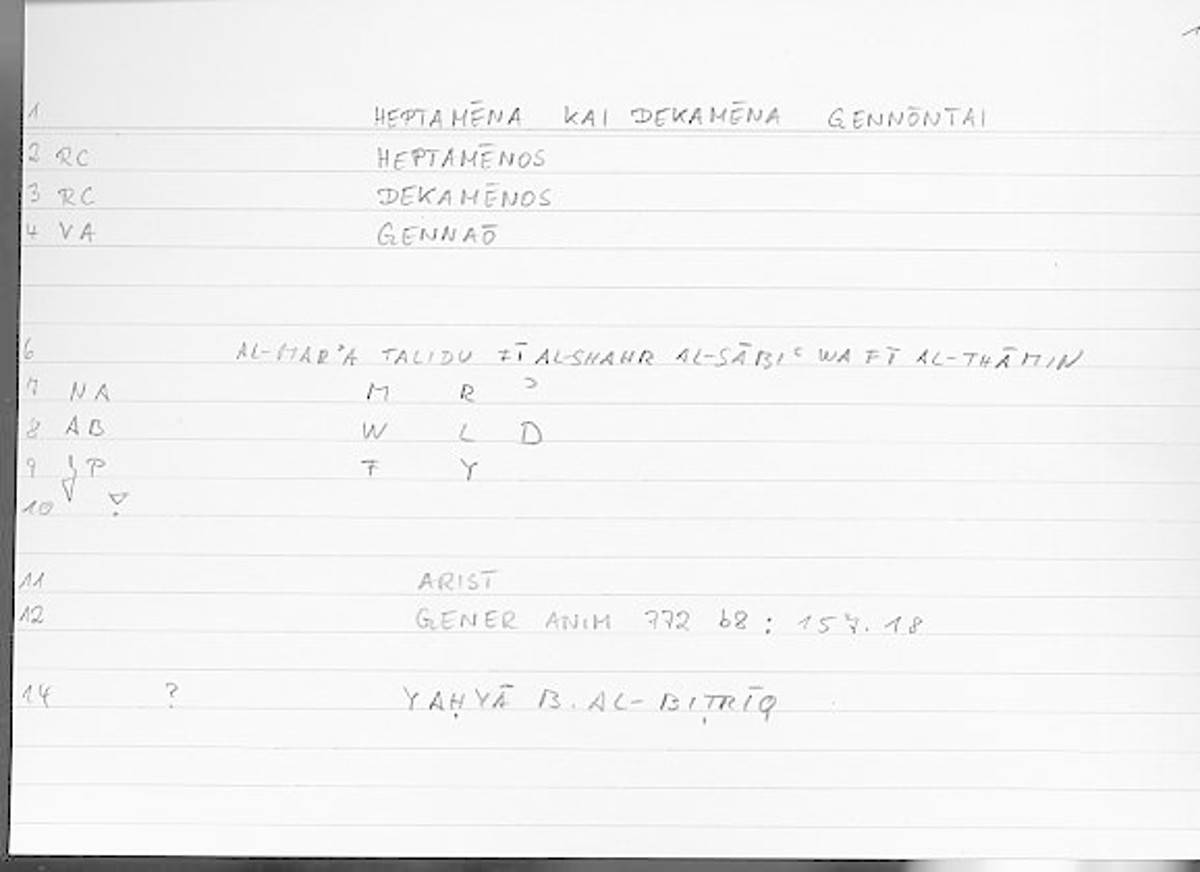 1 HEPTAMĒNA KAI DEKAMĒNA GENNŌNTAI
2 RC HEPTAMĒNOS
3 RC DEKAMĒNOS
4 VA GENNAŌ
6 AL-MARʾA TALIDU FĪ AL-SHAHR AL-SĀBIʿ WA FĪ AL-THĀMIN
7 NA M R ʾ
8 AB W L D
9 P F Y
10
11 ARIST
12 GENER ANIM 772 b8 : 157.18
14 ? YAḤYĀ B. AL-BIṬRĪQ